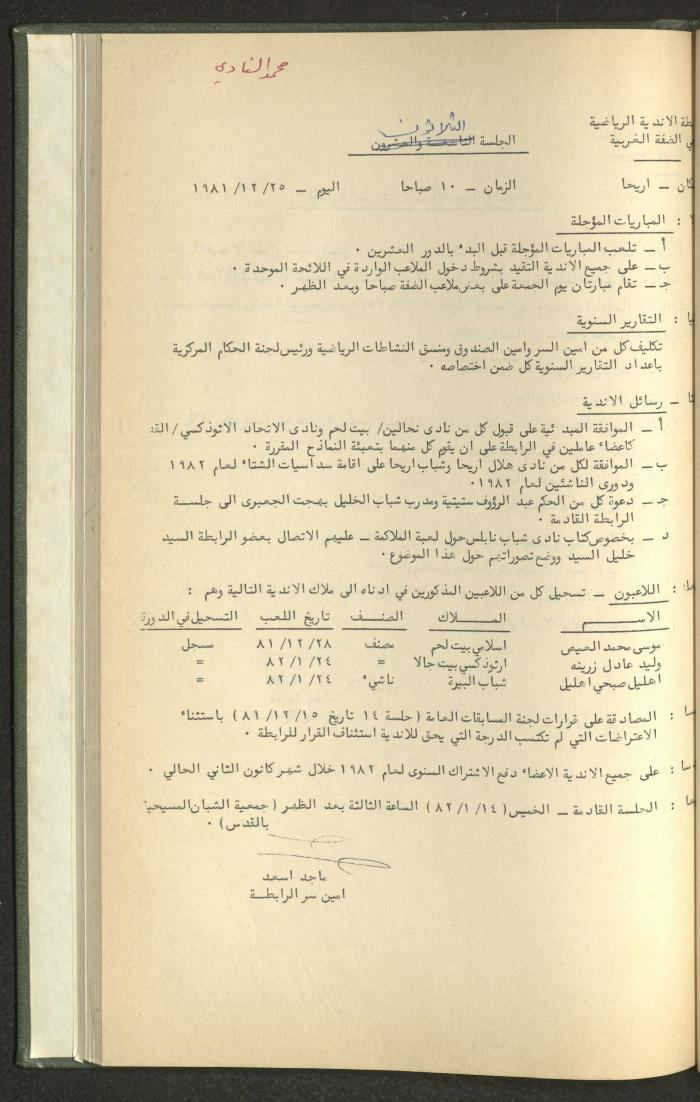 محمد النادي
طة الاندية الرياضية
ي الضفة الغربية
الثلاثون
الجلسة التاسعة والعشرون
كان ــ اريحا    الزمان ــ ١٠ صباحا    اليوم ــ ١٩٨١/١٢/٢٥
ا : المباريات المؤجلة
أ ــ تلعب المباريات المؤجلة قبل البدء بالدور العشرين ٠
ب ــ على جميع الاندية التقيد بشروط دخول الملاعب الواردة في اللائحة الموحدة ٠
جـ ــ تقام مبارتان يوم الجمعة على بعض ملاعب الضفة صباحا وبعد الظهر ٠
يا : التقارير السنوية
تكليف كل من امين السر وامين الصندوق ومنسق النشاطات الرياضية ورئيس لجنة الحكام المركزية
باعداد التقارير السنوية كل ضمن اختصاصه ٠
ثا ــ رسائل الاندية
أ ــ الموافقة المبدئية على قبول كل من نادى نحالين/ بيت لحم ونادى الاتحاد الاثوذكسي/ القد
كاعضاء عاملين في الرابطة على ان يقوم كل منهما بتعبئة النماذج المقررة ٠
ب ــ الموافقة لكل من نادى هلال اريحا وشباب اريحا على اقامة سداسيات الشتاء لعام ١٩٨٢
ودورى الناشئين لعام ١٩٨٢٠
جـ ــ دعوة كل من الحكم عبد الرؤوف ستيتية ومدرب شباب الخليل بهجت الجعبرى الى جلسة
الرابطة القادمة ٠
د ــ بخصوص كتاب نادى شباب نابلس حول لعبة الملاكمة ــ عليهم الاتصال بعضو الرابطة السيد
خليل السيد ووضع تصوراتهم حول هذا الموضوع ٠
عا: اللاعبون ــ تسجيل كل من اللاعبين المذكورين في ادناه الى ملاك الاندية التالية وهم :
الاســـم    المـــلاك    الصنـــف    تاريخ اللعب    التسجيل في الدورة
موسى محمد العيص    اسلامي بيت لحم    مصنف    ٨١/١٢/٢٨    مسجل
وليد عادل زرينه    ارثوذكسي بيت جالا    =    ٨٢/١/٢٤    =
اهليل صبحي اهليل    شباب البيرة    ناشيء    ٨٢/١/٢٤    =
سا : المصادقة على قرارات لجنة المسابقات العامة (جلسة ١٤ تاريخ ٨١/١٢/١٥) باستثناء
الاعتراضات التي لم تكتسب الدرجة التي يحق للاندية استئناف القرار للرابطة ٠
سا : على جميع الاندية الاعضاء دفع الاشتراك السنوى لعام ١٩٨٢ خلال شهر كانون الثاني الحالي ٠
عا : الجلسة القادمة ــ الخميس (٨٢/١/١٤) الساعة الثالثة بعد الظهر (جمعية الشبان المسيحية
بالقدس) ٠
ماجد اسعد
امين سر الرابطـــة